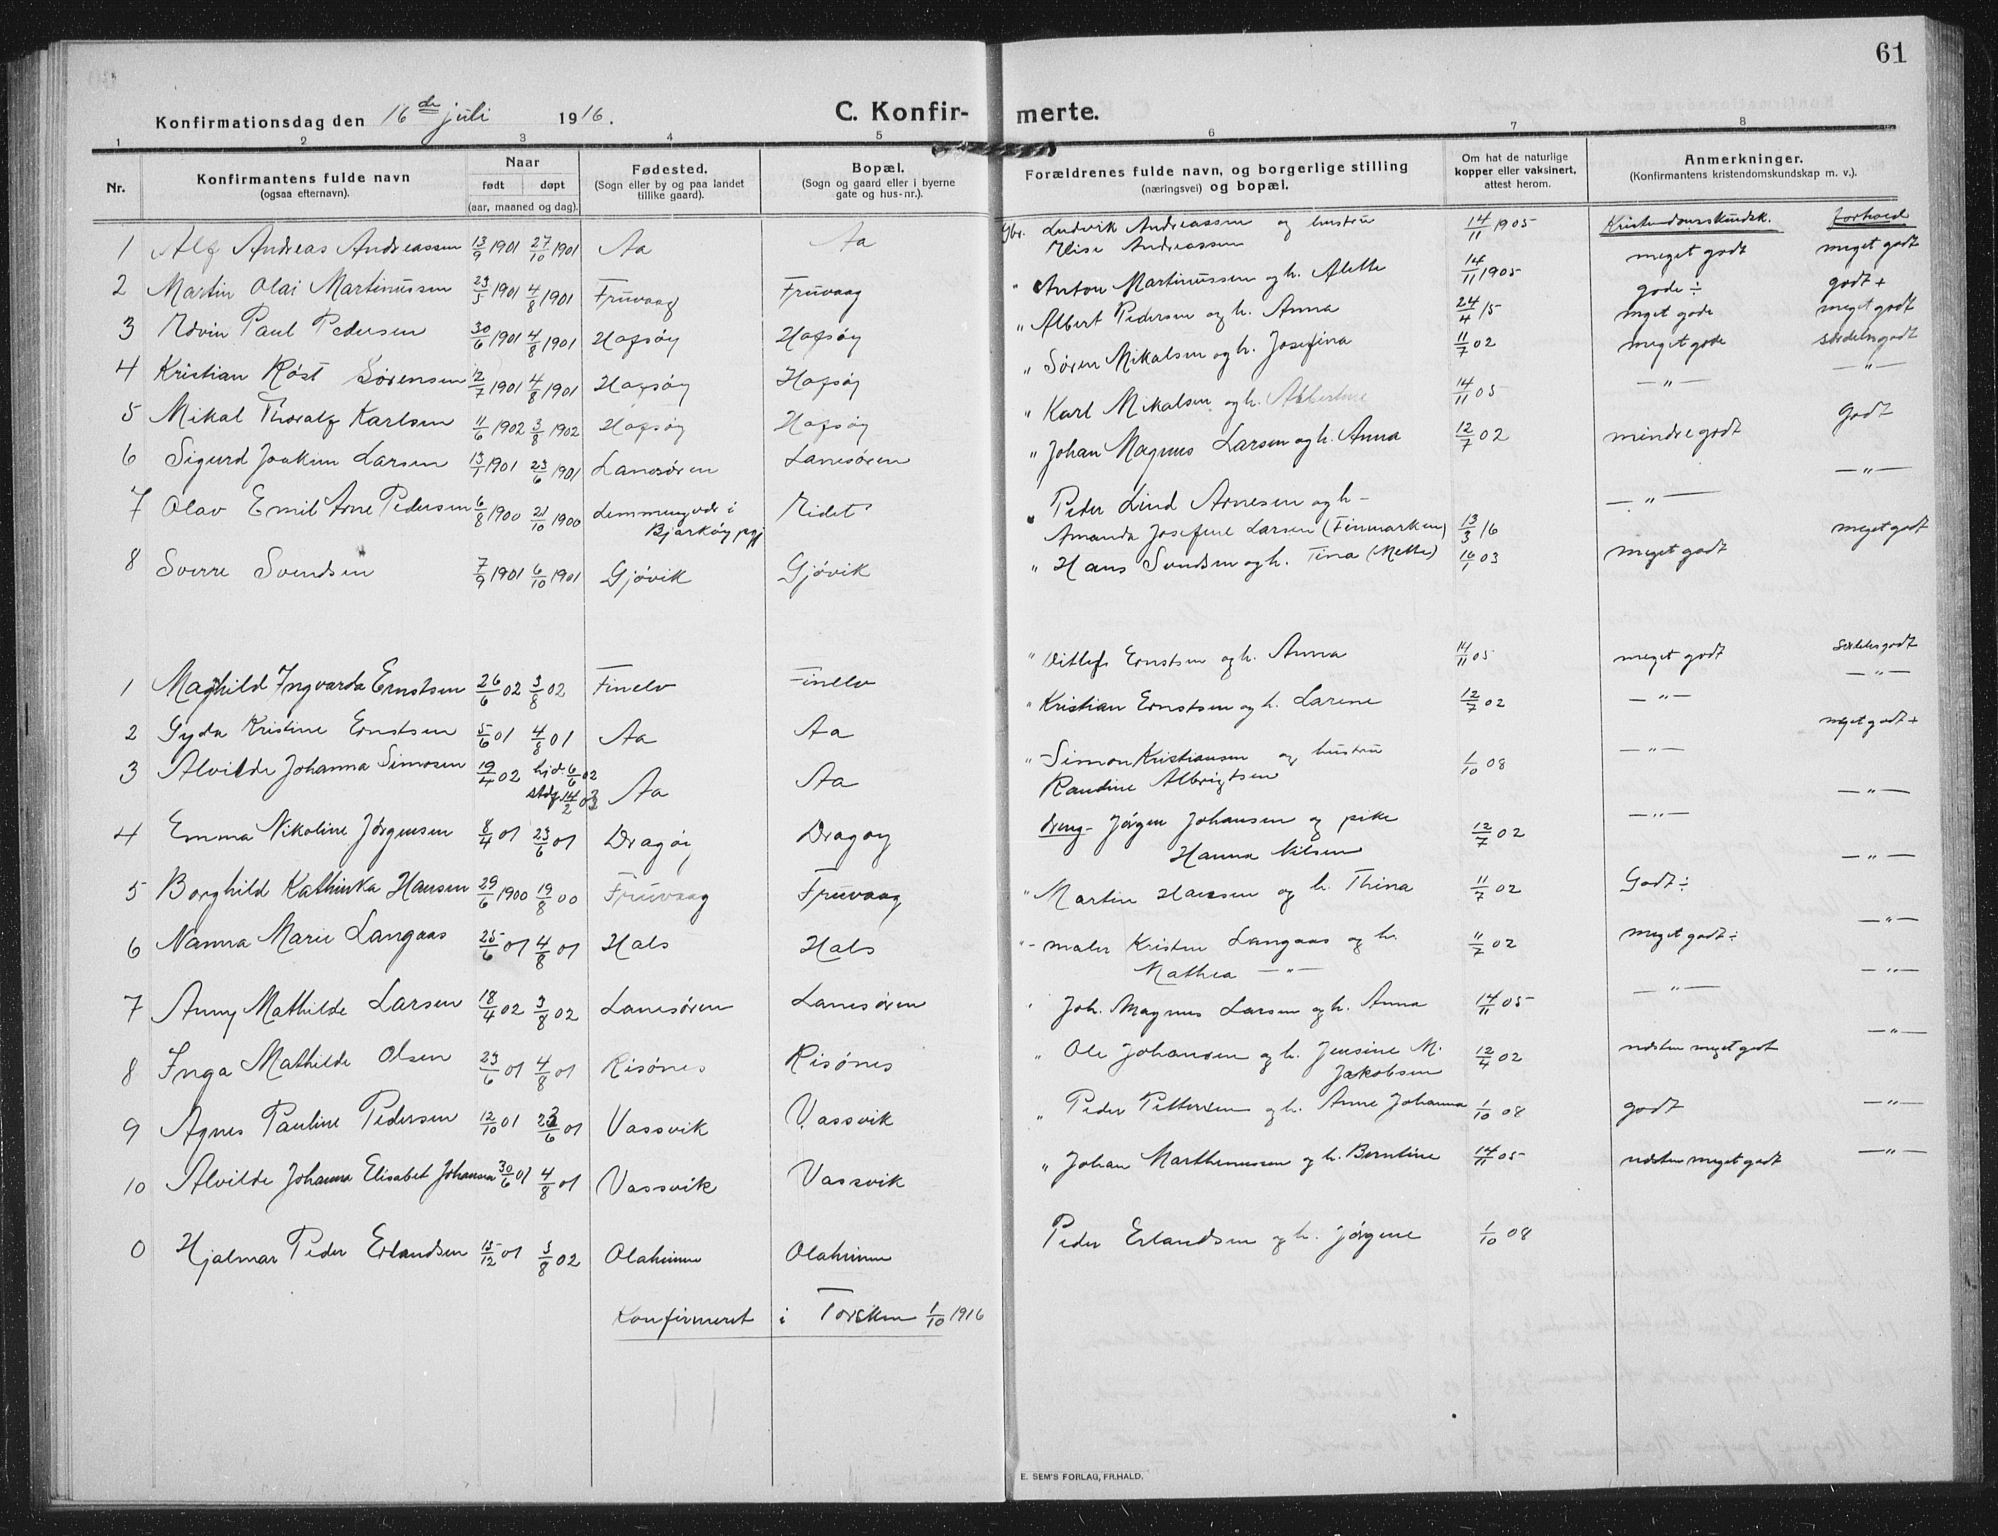 61
Konfirmationsdag den 16de juli 1916.
C. Konfirmerte.
1 2 3 4 5 6 7 8
Nr.
Konfirmantens fulde navn
(ogsaa efternavn).
Naar
født døpt
(aar, maaned og dag).
Fødested.
(Sogn eller by og paa landet
tillike gaard).
Bopæl.
(Sogn og gaard eller i byerne
gate og hus-nr.).
Forældrenes fulde navn, og borgerlige stilling
(næringsvei) og bopæl.
Om hat de naturlige
kopper eller vaksinert,
attest herom.
Anmerkninger.
(Konfirmantens kristendomskundskap m. v.).
Kristendomskundsk. forhold
1 Alf Andreas Andreassen 13/9 1901 27/10 1901 Aa Aa Gbr. Ludvik Andreassen og hustru 14/11 1905 meget godt meget godt
Elise Andreassen
2 Martin Olai Martinussen 23/5 1901 4/8 1901 Fruvaag Fruvaag " Anton Martinussen og h. Alette 14/11 1905 gode ÷ godt +
3 Edvin Paul Pedersen 30/6 1901 4/8 1901 Hofsøy Hofsøy " Albert Pedersen og h. Anna 24/4 15 mget gode meget godt
4 Kristian Røst Sørensen 12/7 1901 4/8 1901 Hofsøy Hofsøy " Søren Mikalsen og h. Josefina 11/7 02 meget gode særdelesgodt
5 Mikal Thoralf Karlsen 11/6 1902 3/8 1902 Hofsøy Hofsøy " Karl Mikalsen og h. Albertine 14/11 05 — " — — " —
6 Sigurd Joakim Larsen 13/1 1901 23/6 1901 Lanesøren Lanesøren " Johan Magnus Larsen og h. Anna 12/7 02 mindre godt Godt
7 Olav Emil Arne Pedersen 6/8 1900 21/10 1900 Lemmingvær i Eidet " Peder Lind Arnesen og h- — " — — " —
Bjarkøy pgj Amanda Josefine Larsen (Finmarken) 13/3 16
8 Sverre Svendsen 7/9 1901 6/10 1901 Gjøvik Gjøvik " Hans Svendsen og h. Tina (Mette) 16/1 03 meget godt meget godt
1 Maghild Ingvarda Ernstsen 26/6 02 3/8 02 Finelv Finelv " Ditlefs Ernstsen og h. Anna 14/11 05 meget godt særdelesgodt
2 Gyda Kristine Ernstsen 5/6 01 4/8 01 Aa Aa " Kristian Ernstsen og h. Larene 12/7 02 — " — — " —
3 Alvilde Johanna Simosen 19/4 02 hjd. 6/6 02 Aa Aa " Simon Kristiansen og hustru 1/10 08 — " — meget godt +
stdf 14/2 03 Randine Albrigtsen
4 Emma Nikoline Jørgensen 8/4 01 23/6 01 Dragøy Dragøy dreng- Jørgen Johansen og pike 12/7 02 — " — — " —
Hanna Nilsen
5 Borghild Kathinka Hansen 29/6 1900 19/8 00 Fruvaag Fruvaag " Martin Hansen og h. Thina 11/7 02 Godt ÷ — " —
6 Nanna Marie Langaas 25/6 01 4/8 01 Hals Hals "- maler Kristen Langaas og h. 11/7 02 meget godt ÷ — " —
Mathea — " —
7 Anny Mathilde Larsen 18/4 02 3/8 02 Lanesøren Lanesøren " Joh. Magnus Larsen og h. Anna 14/11 05 — " — — " —
8 Inga Mathilde Olsen 23/6 01 4/8 01 Risönes Risönes " Ole Johansen og h. Jensine M. 12/4 02 næsten meget godt — " —
Jakobsen
9 Agnes Pauline Pedersen 12/10 01 23/6 01 Vassvik Vassvik " Peder Pettersen og h. Anne Johanna 1/10 08 godt — " —
10 Alvilde Johanna Elisabet Johansen 30/6 01 4/8 01 Vassvik Vassvik " Johan Marthinussen og h. Berntine 14/11 05 næsten meget godt — " —
0 Hjalmar Peder Erlandsen 15/12 01 3/8 02 Olaheimen Olaheimen Peder Erlandsen og h. Jørgine 1/10 08
Konfirmeret i Torsken 1/10 1916
E. SEM'S FORLAG, FR.HALD.